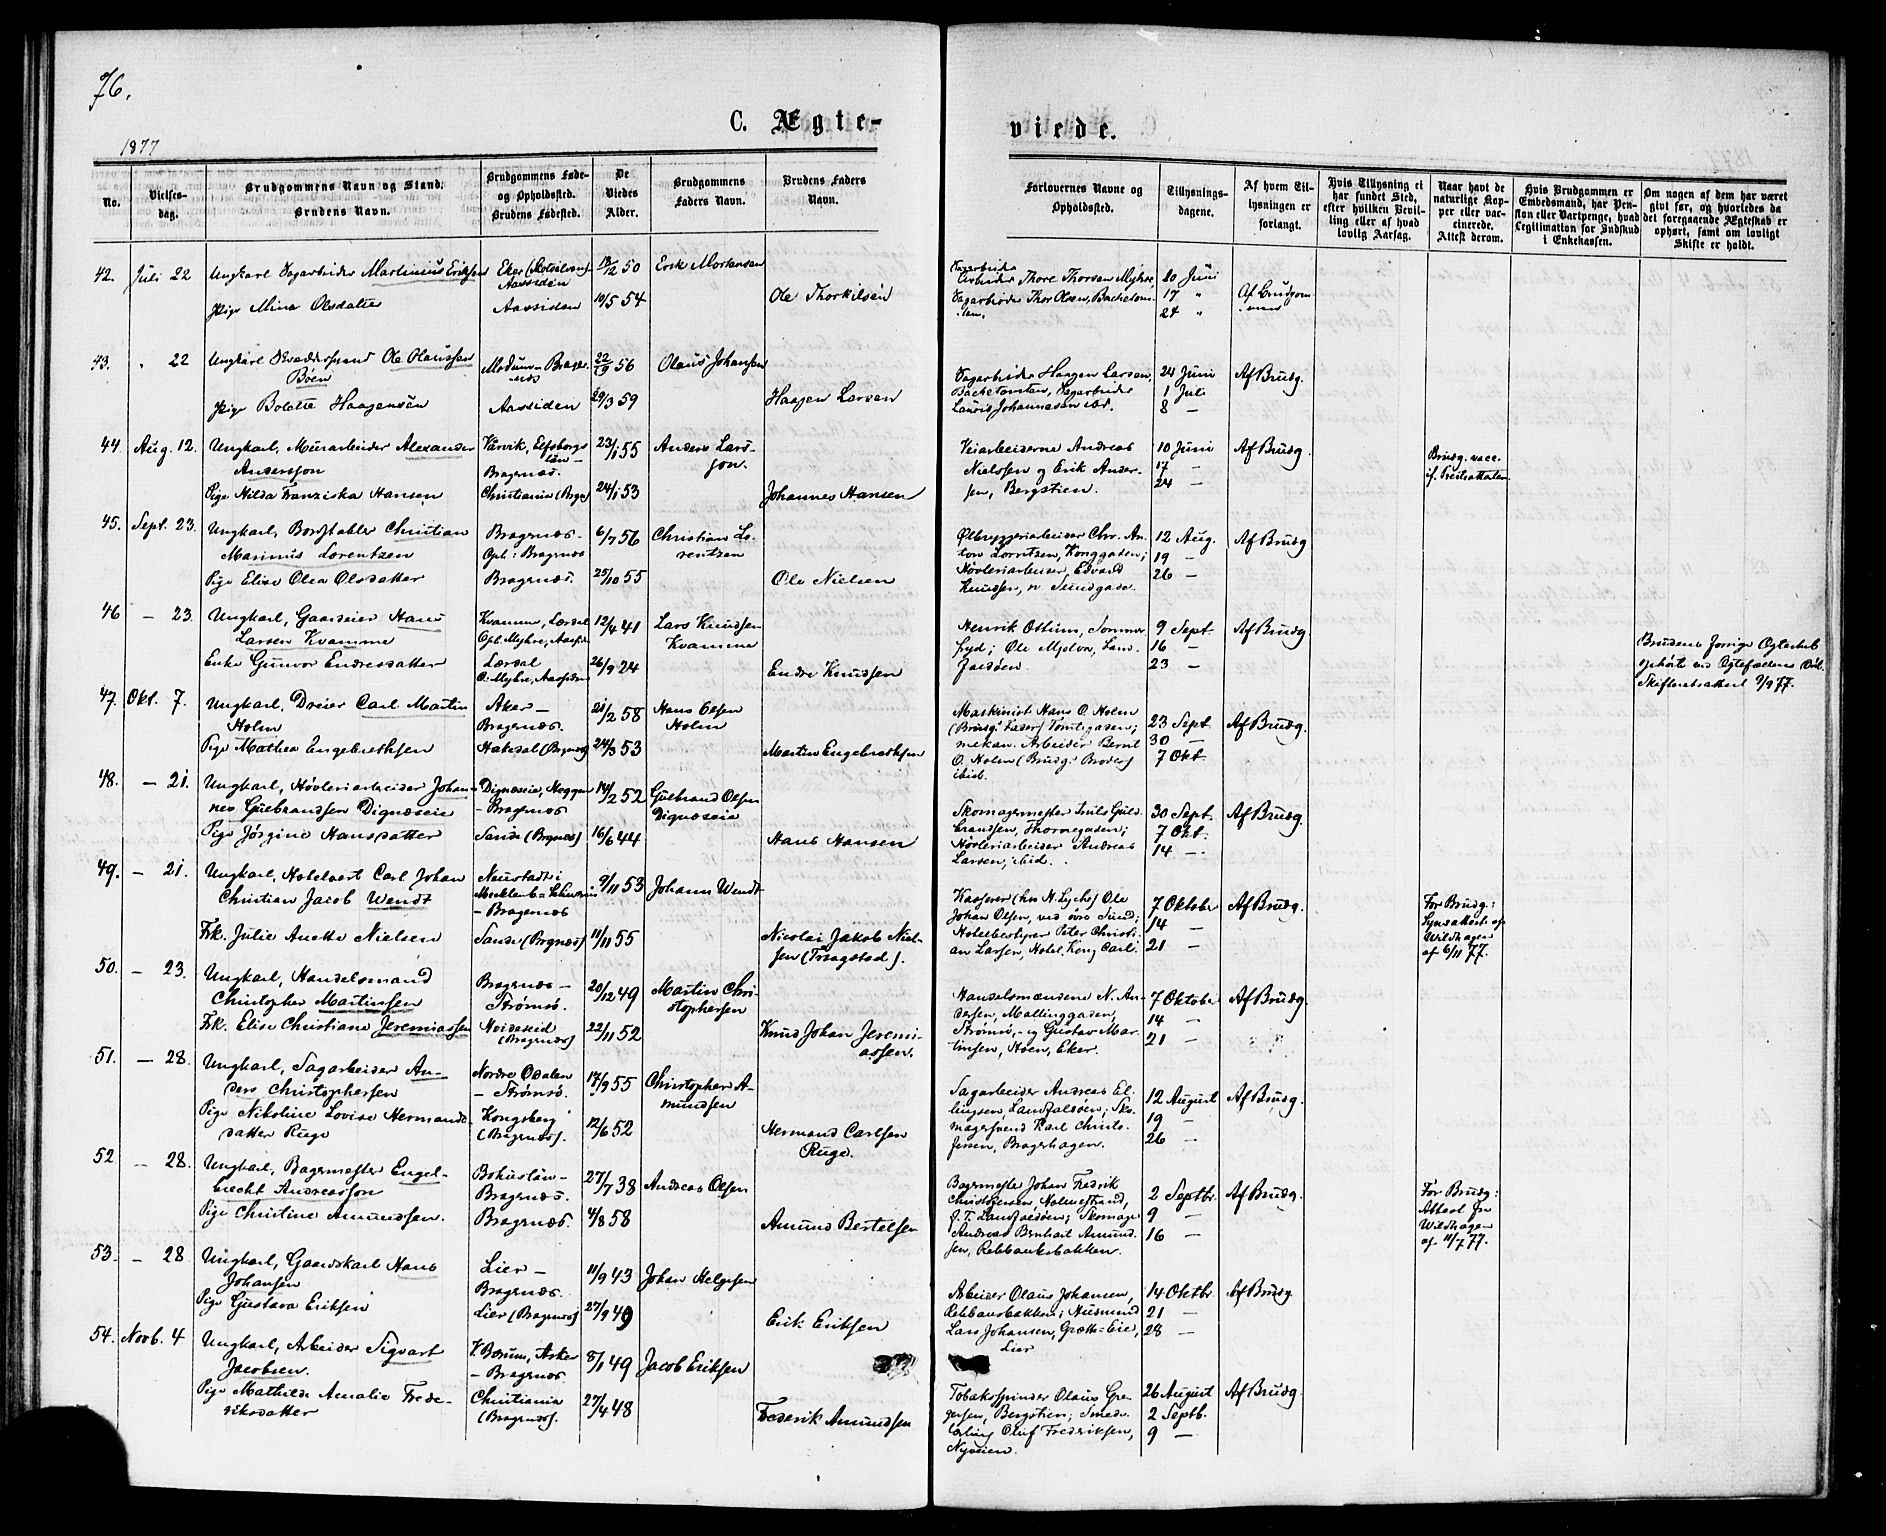 76.
C. Ægte-
viede.
1877
No.
Vielses-
dag.
Brudgommens Navn og Stand.
Brudens Navn.
Brudgommens Føde-
og Opholdssted.
Brudens Fødested.
De
Viedes
Alder.
Brudgommens
Faders Navn.
Brudens Faders
Navn.
Forlovernes Navne og
Opholdssted.
Tillysnings-
dagene.
Af hvem Til-
lysningen er
forlangt.
Hvis Tillysning ei
har fundet Sted,
efter hvilken Bevil-
ling eller af hvad
lovlig Aarsag.
Naar havt de
naturlige Kop-
per eller vac-
cinerede.
Attest derom.
Hvis Brudgommen er
Embedsmand, har Pen-
sion eller Vartpenge, hvad
Legitimation for Indskud
i Enkekassen.
Om nogen af dem har været
givt før, og hvorledes da
det foregaaende Ægteskab er
ophørt, samt om lovligt
Skifte er holdt.
42. Juli 22 Ungkarl Sagarbeider Martinius Eriksen Eker 50 Erik Mortensen
Aassiden
Pige Mina Olsdatter Aassiden 10/5 54 Ole Thorkilsen
Sagarbeider
Arbeider Thore Thorsen Myhre, 10 Juni
Sagarbeider Thor Olsen, 17 " Af Brudgom-
24 " men
43. " 22 Ungkarl Ole Olaussen Modum - Brager- 56 Olaus Johansen
Bøen næs
Pige Bolette Haagensen Aassiden 29/3 59 Haagen Larsen
Sagarbeider Haagen Larsen, 24 Juni Af Brudg.
Bachetomten, Sagarbeider 1 Juli
Lauris Johannesen ibd. 8 —
44 Aug. 12. Ungkarl, Murarbeider Alexander Elfsborgs 23/1 55 Anders Lars-
Andersson län - son.
Bragernæs.
Pige Hilda Franziska Hansen Christiania (Brgs) 24/1 53 Johannes Hansen
Veiarbeiderne Andreas 10 Juni Af Brudg.
Nielsen og Erik Ander- 17 —
sen, Bergstien. 24 —
Brudg. vacc.
if. Præsteattesten
45. Sept. 23. Ungkarl, Bordstabler Christian Bragernæs - 6/7 56 Christian Lo-
Marinius Lorentzen Oph: Bragernæs rentzen
Pige Elise Olea Olsdatter Bragernæs. 25/10 55 Ole Nielsen
Ølbryggeriarbeider Chr. An- 12 Aug. Af Brudg
ton Lorntzen, Konggaden; 19 —
Høvleriarbeider, Edvard 26 —
Knudsen, n Sundgade.
46 — 23. Ungkarl, Gaardeier Hans Kvamme, Lærdal 12/4 41 Lars Knudsen
Larsen Kvamme Oph. Myhre, Aassiden Kvamme
Enke Gunvor Endresdatter Lærdal 26/9 24 Endre Knudsen
O: Myhre, Aassiden
Henrik Ottum, Sommer- 9 Sept. Af Brudg
fryd; Ole Mjelva, Land- 16 —
faldøen. 23 —
Brudens forrige Egteskab
ophørt ved Egtefællens Død.
Skifteretsattest 7/9 77.
47. Okt. 7. Ungkarl, Dreier Carl Martin Aker - 21/2 58 Hans Olsen
Holm Bragernæs. Holm
Pige Mathea Engebrethsen (Brgnæs) 24/3 53 Martin Engebrethsen
Maskinist Hans O. Holm 23 Sept. Af Brudg.
(Brudg.s Fader) Tomtegaden; 30 —
mekan. Arbeider Bernt 7 Okt.
O. Holm (Brudg.s Broder)
ibid.
48. — 21. Ungkarl, Høvleriarbeider Johan- Dignæseie, Heggen 14/2 52 Gulbrand Olsen
nes Gulbrandsen Dignæseie - Bragernæs Dignæseie
Pige Jørgine Hansdatter Sande (Brgnæs) 16/6 44 Hans Hansen
Skomagermester Guld- 30 Sept. Af Brudg.
brandsen, Thornegaden; 7 Okt.
Høvleriarbeider Andreas 14 —
Larsen, ibid.
49. — 21. Ungkarl, Hotelvert Carl Johan Neustadt i 9/11 53 Johann Wendt
Christian Jacob Wendt Mecklenb=Schwerin
- Bragernæs
Frk. Julie Anette Nielsen Sande (Brgnæs) 11/11 55 Nicolai Jakob Niel-
sen (Tragstad).
Kasserer (hos H. Lyche) Ole 7 Oktober Af Brudg.
Johan Olsen, ved øvre Sund; 14 —
Hotelbestyrer Peter Christi-
an Larsen, Hotel Kong Carl. 21 —
For Brudg:
Synsattest af
Wildhagen
af 6/11 77.
50. — 23. Ungkarl, Handelsmand Bragernæs - 20/12 49 Martin Chri-
Christopher Martinsen Strømsø. stophersen
Frk. Elise Christiane Jeremiassen Hvideseid 22/11 52 Knud Johan Jeremi-
(Bragernæs) assen.
Handelsmændene N. An- 7 Oktober Af Brudg.
dersen, Mallinggaden, 14 —
Strømsø, - og Gustav Mar- 21 —
tinsen, Hoen, Eker.
51. — 28. Ungkarl, Sagarbeider An- Nordre Odalen 17/9 55 Christopher A-
ders Christophersen - Strømsø. mundsen
Pige Nikoline Lovise Hermands- Kongsberg 12/6 52 Hermand Carlsen
datter Ruge (Bragernæs). Ruge.
Sagarbeider Andreas El- 12 August Af Brudg.
lingsen, Landfaldøen; Sko- 19 —
magersvend Karl Christo-
fersen, Bragerhagen. 26 —
52 — 28. Ungkarl, Bagermester Engel- Bohuslän - 27/7 38 Andreas Olsen
brecht Andreasson Bragernæs.
Pige Christine Amundsen. Bragernæs. 4/8 58 Amund Bertelsen
Bagermester Johan Fredrik 2 Septbr. Af Brudg.
Christofersen, Holmestrand, 9 —
f. T. Landfaldøen; Skomager
Andreas Bernhart Amund- 16 —
sen, Rebbanebakken.
For Brudg:
Attest fra
Wildhagen
af 11/7 77.
53. — 28 Ungkarl, Gaardskarl Hans Lier - 11/9 43 Johan Helgesen
Johansen Bragernæs.
Pige Gustava Eriksen Lier (Bragernæs) 27/9 49 Erik Eriksen
Arbeider Olaus Johansen, 14 Oktbr. Af Brudg
Rebbanebakken; Husmand 21 —
Lars Johansen, Grette=Eie, 28 —
Lier
54. Novb. 4 Ungkarl, Arbeider Sigvart V. Bærum, Asker 8/1 49 Jacob Eriksen
Jacobsen. - Bragernæs.
Pige Mathilde Amalie Frede- Christiania 27/4 48 Frederik Amundsen
riksdatter (Bragernæs).
Tobakspinder Olaus Gre- 26 August Af Brudg
gersen, Bergstien; Smede- 2 Septb.
lærling Oluf Fredriksen, 9 —
Nyveien.